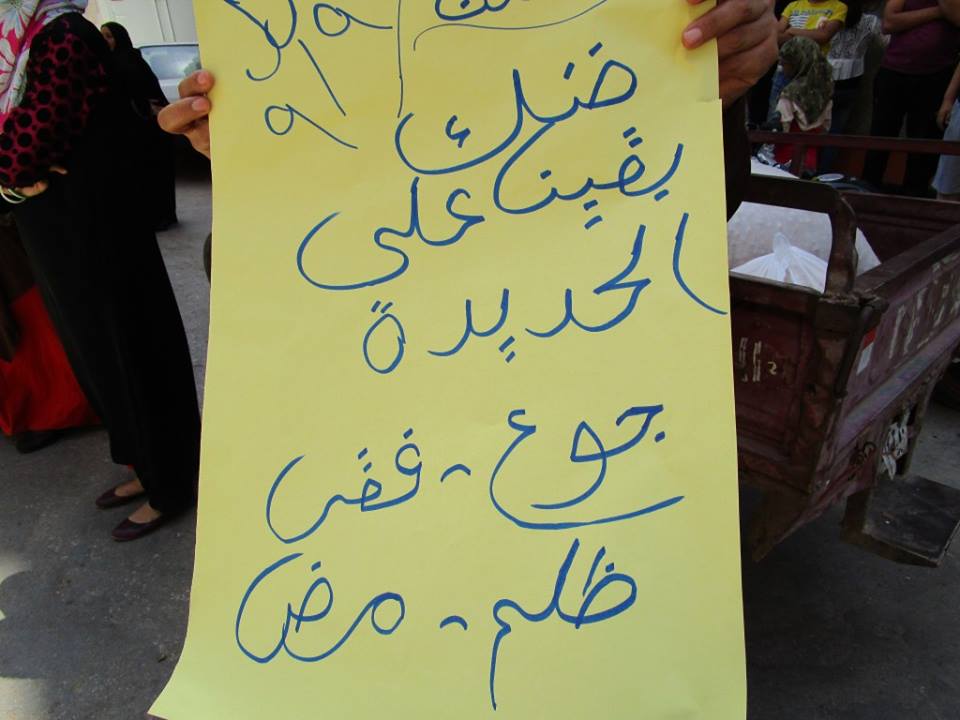 ضنك
بقينا على
الحديدة
جوع - فقر
ظلم - مرض